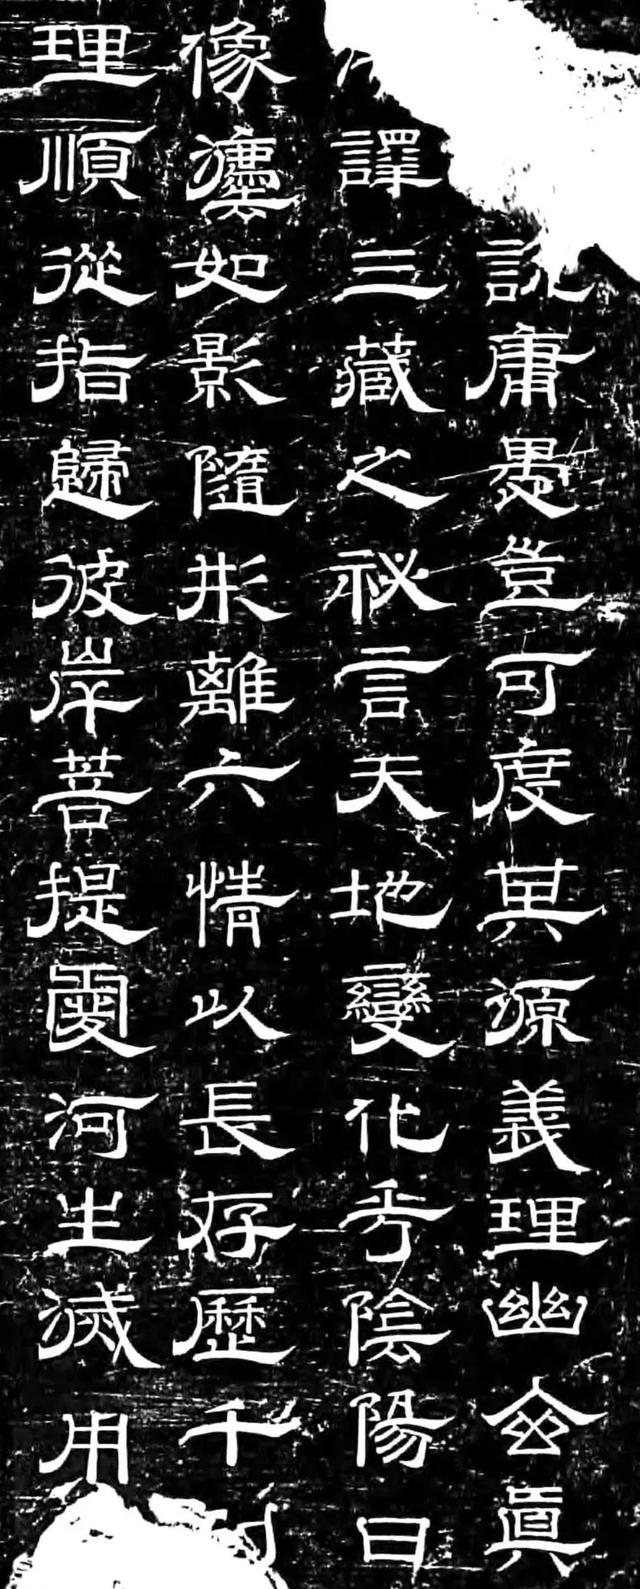 庸愚豈可度其源義理幽玄眞
譯三藏之祕言天地變化乎陰陽日
像灋如影隨形離六情以長存歷千
理順從指歸彼岸菩提愛河生滅用